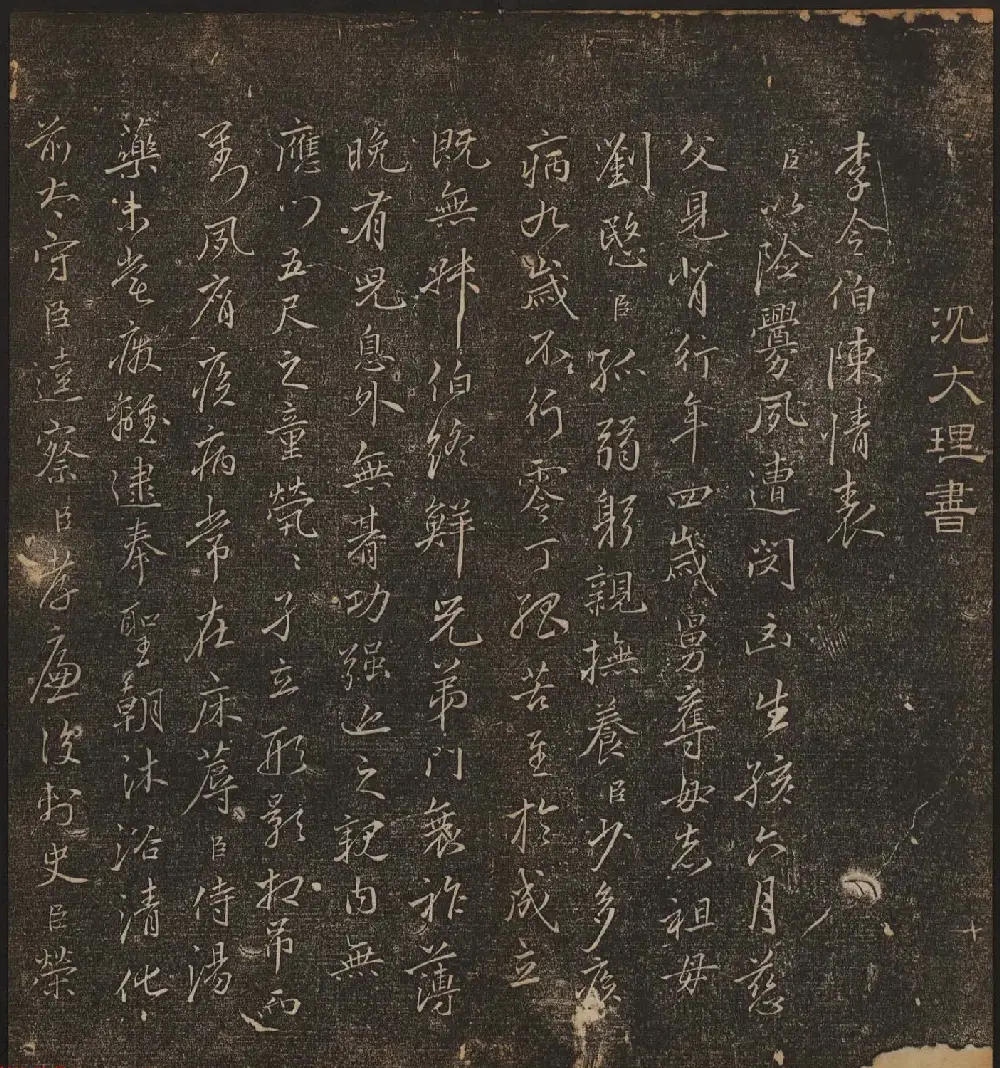 沈大理書
十
李令伯陳情表
臣以險釁夙遭閔凶生孩六月慈
父見背行年四歲舅奪母志祖母
劉愍臣孤弱躬親撫養臣少多疾
病九歲不行零丁孤苦至於成立
既無叔伯終鮮兄弟門衰祚薄
晚有兒息外無朞功强近之親内無
應門五尺之童煢〻孑立形影相吊而
劉夙嬰疾病常在床蓐臣侍湯
藥未嘗廢離逮奉聖朝沐浴清化
前太守臣逵察臣孝廉後刺史臣榮